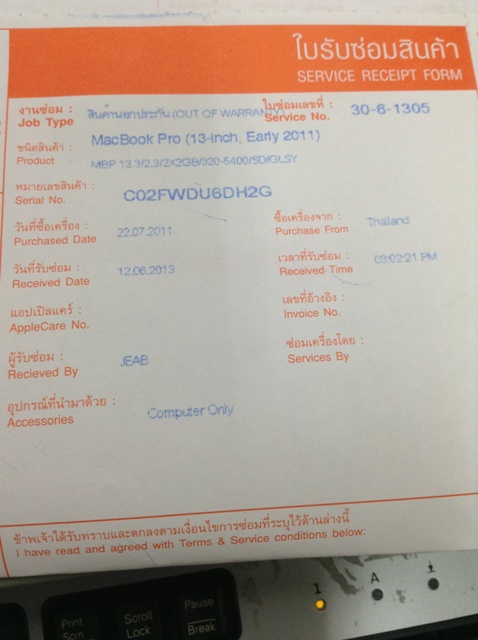 ใบรับซ่อมสินค้า
SERVICE RECEIPT FORM
งานซ่อม : สินค้านอกประกัน (OUT OF WARRANTY) ใบซ่อมเลขที่ : 30-6-1305
Job Type Service No.
ชนิดสินค้า : MacBook Pro (13-inch, Early 2011)
Product MBP 13.3/2.3/2X2GB/320-5400/SD/GLSY
หมายเลขสินค้า :
Serial No. C02FWDU6DH2G
วันที่ซื้อเครื่อง : ซื้อเครื่องจาก : Thailand
Purchased Date 22.07.2011 Purchase From
วันที่รับซ่อม : เวลาที่รับซ่อม : 03:02:21 PM
Received Date 12.06.2013 Received Time
แอปเปิลแคร์ : เลขที่อ้างอิง :
AppleCare No. Invoice No.
ผู้รับซ่อม : ซ่อมเครื่องโดย :
Recieved By JEAB Services By
อุปกรณ์ที่นำมาด้วย :
Accessories Computer Only
ข้าพเจ้าได้รับทราบและตกลงตามเงื่อนไขการซ่อมที่ระบุไว้ด้านล่างนี้
I have read and agreed with Terms & Service conditions below:
1 A
Print Scroll Pause
Scrn Lock Break